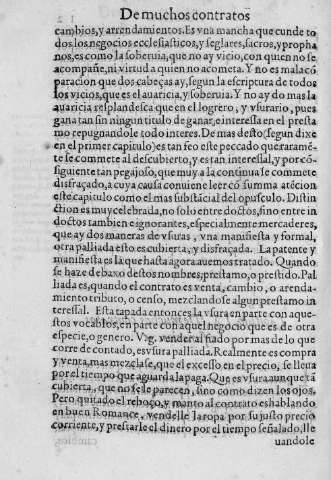 De muchos contratos
cambios, y arrendamientos. Es vna mancha que cunde to
dos los negocios ecclesiasticos, y seglares, sacros, y propha
nos, es como la soberuia, que no ay vicio, con quien no se
acompañe, ni virtud a quien no acometa. Y no es mala cõ
paracion que dos cabeças ay, segun la escriptura de todos
los vicios, que es el auaricia, y soberuia. Y no ay do mas la
auaricia resplandesca que en el logrero, y vsurario, pues
gana tan sin ningun titulo de ganar, e interessa en el presta
mo repugnandole todo interes. De mas desto (segun dixe
en el primer capitulo) es tan feo este peccado que raramē
te se commete al descubierto, y es tan interessal, y por cõ
siguiente tan pegajoso, que muy a la continua se commete
disfraçado, a cuya causa conuiene leer cõ summa atēcion
este capitulo como el mas substãcial del opusculo. Distin
ction es muy celebrada, no solo entre doctos, sino entre in
doctos tambien e ignorantes, especialmente mercaderes,
que ay dos maneras de vsuras, vna manifiesta y formal,
otra palliada esto es cubierta, y disfraçada. La patente y
manifiesta es la que hasta agora auemos tratado. Quando
se haze debaxo destos nombres, prestamo, o prestido. Pal
liada es, quando el contrato es venta, cambio, o arenda-
miento tributo, o censo, mezclandose algun prestamo in
teressal. Esta tapada entonces la vsura en parte con aque-
stos vocablos, en parte con aquel negocio que es de otra
especie, o genero. Vvg. vender al fiado por mas de lo que
corre de contado, es vsura palliada. Realmente es compra
y venta, mas mezclase, que el excesso en el precio, se lleua
por el tiempo que aguarda la paga. Que es vsura aunque tã
cubierta, que no se le parecen, sino como dizen los ojos.
Pero quitado el reboço, y manto al contrato es hablando
en buen Romance, vendelle la ropa por su justo precio
corriente, y prestarle el dinero por el tiempo señalado, lle
uandole